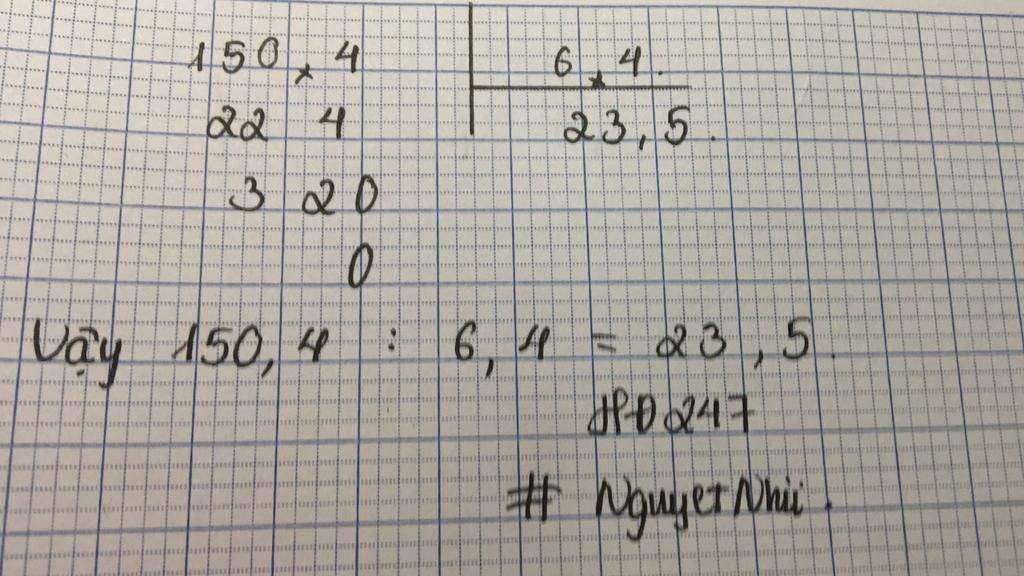 150,4 6,4.
22 4 23,5.
3 20
0
Vậy 150,4 : 6,4 = 23,5.
247
# Nguyet Nhii.